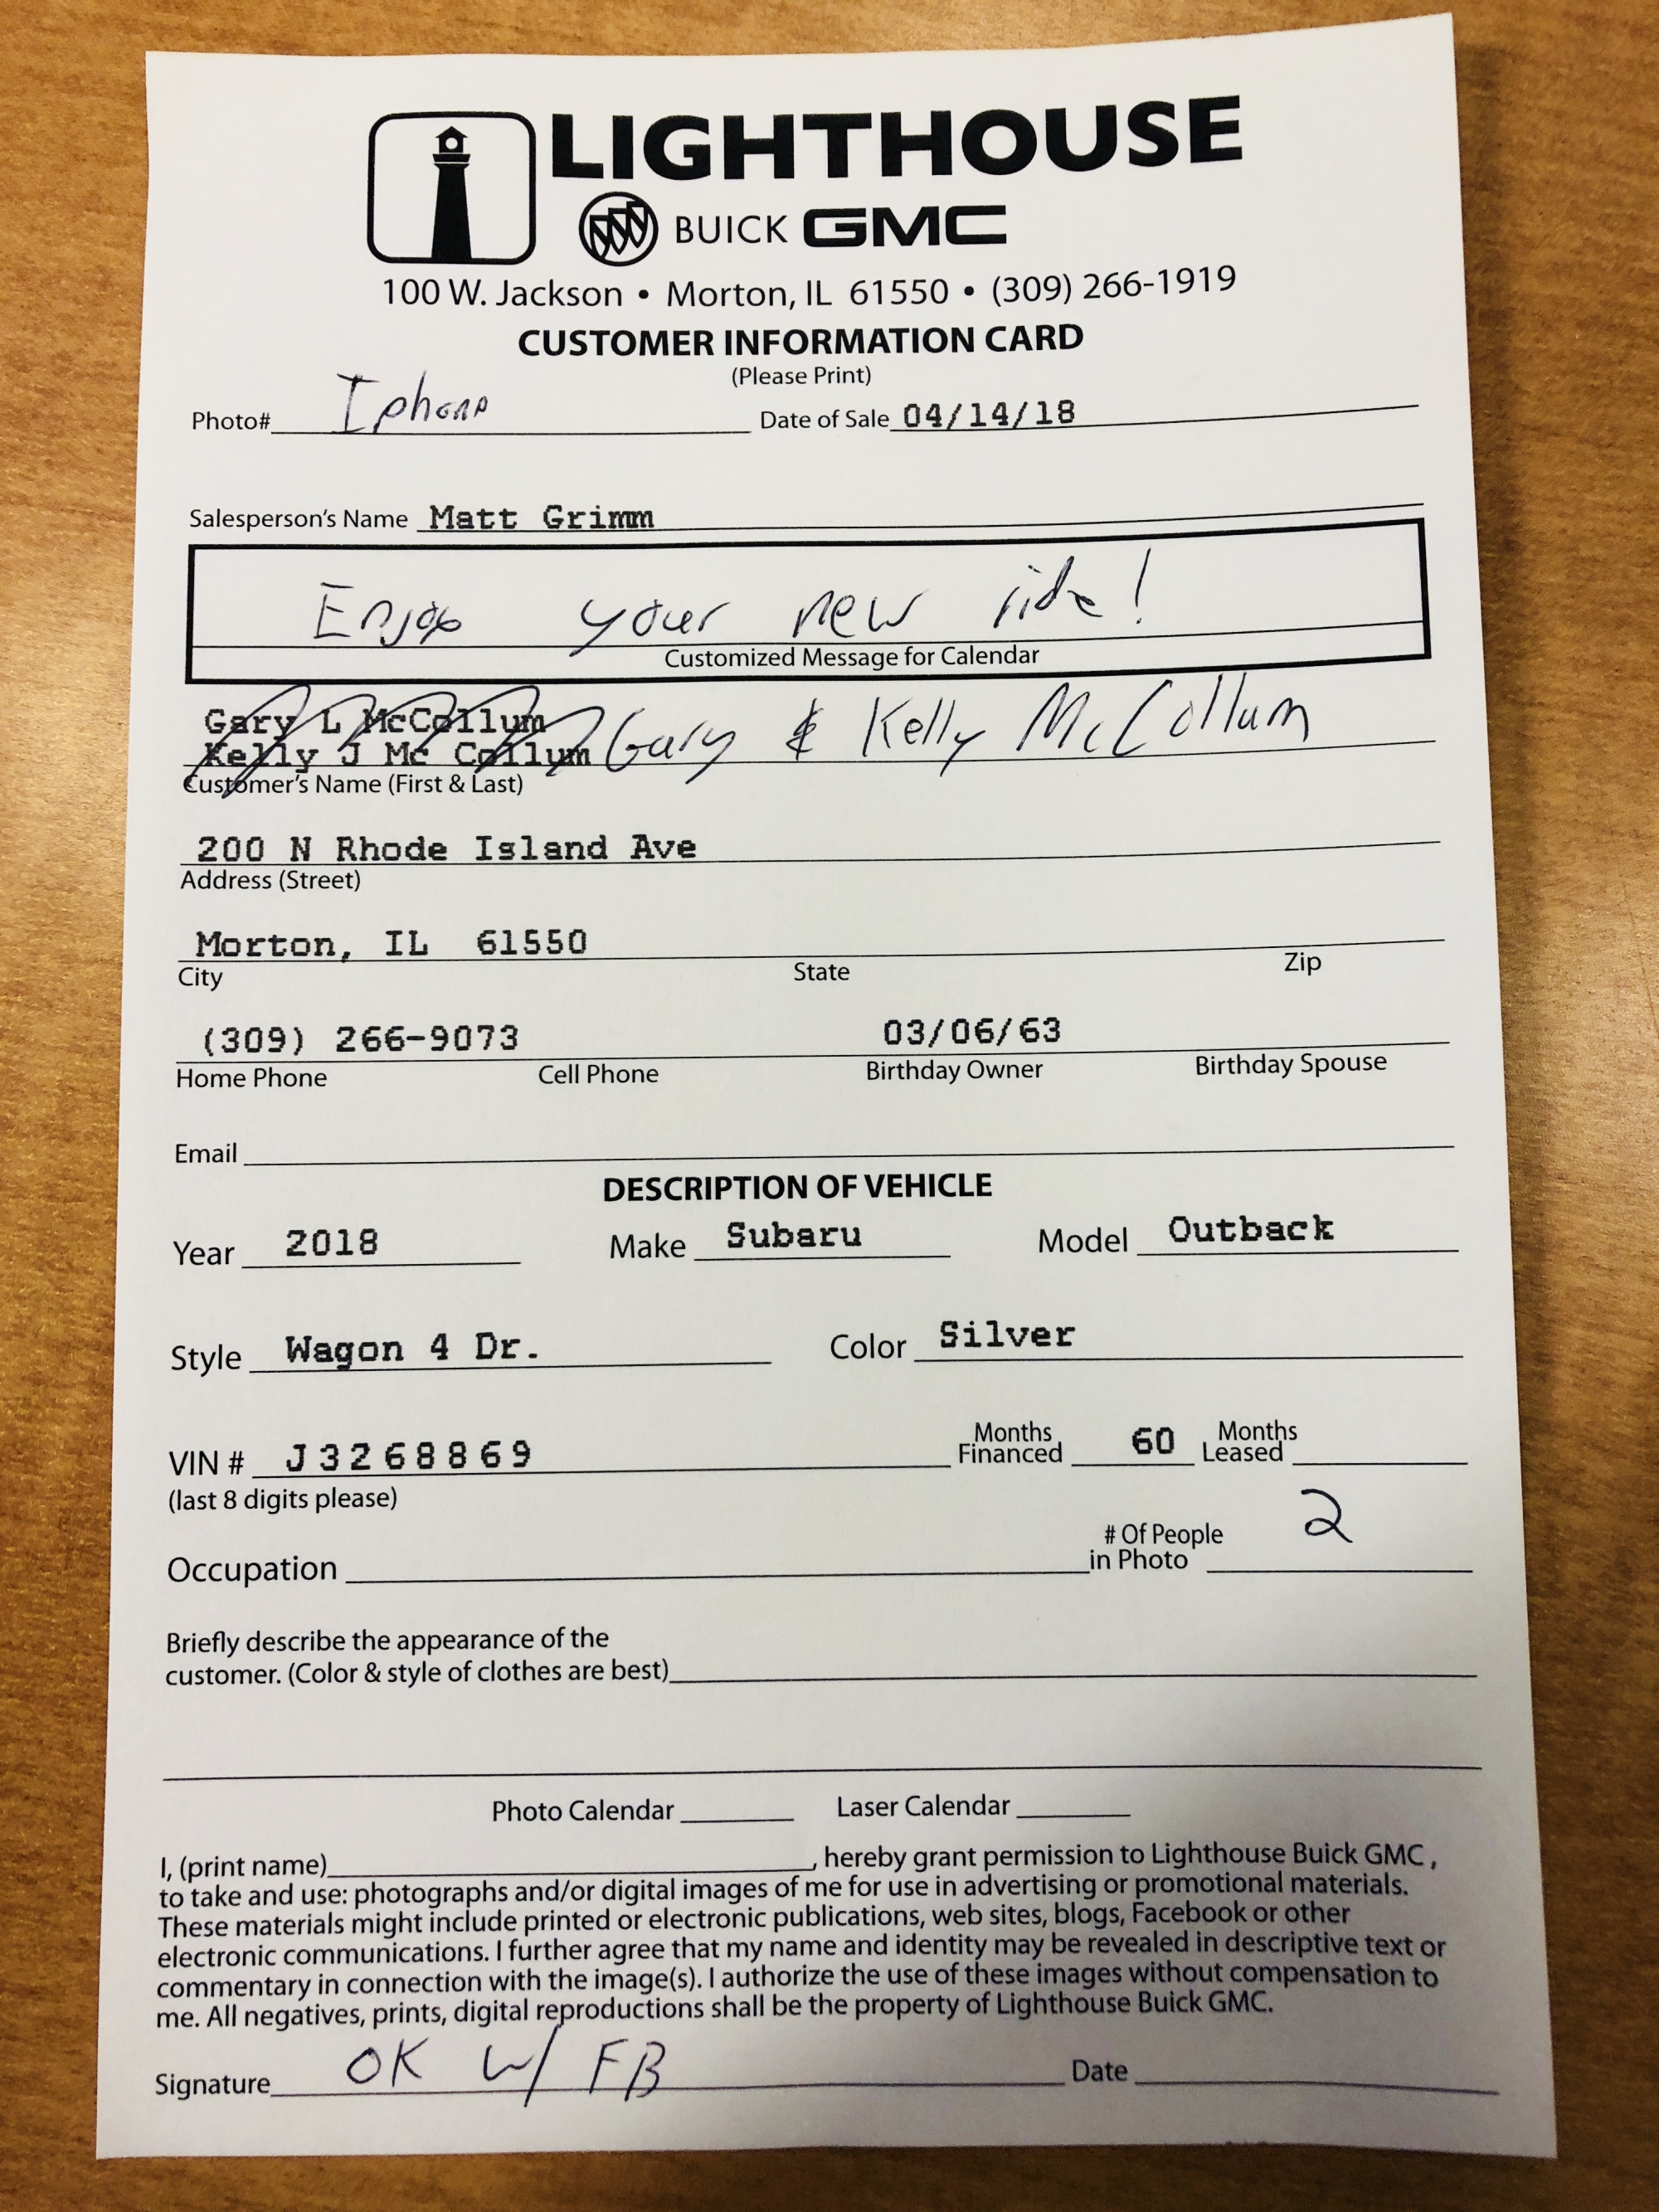 LIGHTHOUSE
BUICK GMC
100 W. Jackson • Morton, IL 61550 • (309) 266-1919
CUSTOMER INFORMATION CARD
(Please Print)
Photo# Iphone Date of Sale 04/14/18
Salesperson's Name Matt Grimm
Enjoy your new ride!
Customized Message for Calendar
Gary L McCollum
Kelly J Mc Collum Gary & Kelly McCollum
Customer's Name (First & Last)
200 N Rhode Island Ave
Address (Street)
Morton, IL 61550
City State Zip
(309) 266-9073 03/06/63
Home Phone Cell Phone Birthday Owner Birthday Spouse
Email
DESCRIPTION OF VEHICLE
Year 2018 Make Subaru Model Outback
Style Wagon 4 Dr. Color Silver
VIN # J3268869 Months Financed 60 Months Leased
(last 8 digits please)
Occupation # Of People in Photo 2
Briefly describe the appearance of the
customer. (Color & style of clothes are best)
Photo Calendar Laser Calendar
I, (print name) , hereby grant permission to Lighthouse Buick GMC ,
to take and use: photographs and/or digital images of me for use in advertising or promotional materials.
These materials might include printed or electronic publications, web sites, blogs, Facebook or other
electronic communications. I further agree that my name and identity may be revealed in descriptive text or
commentary in connection with the image(s). I authorize the use of these images without compensation to
me. All negatives, prints, digital reproductions shall be the property of Lighthouse Buick GMC.
Signature OK W/ FB Date